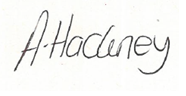 A. Hackney